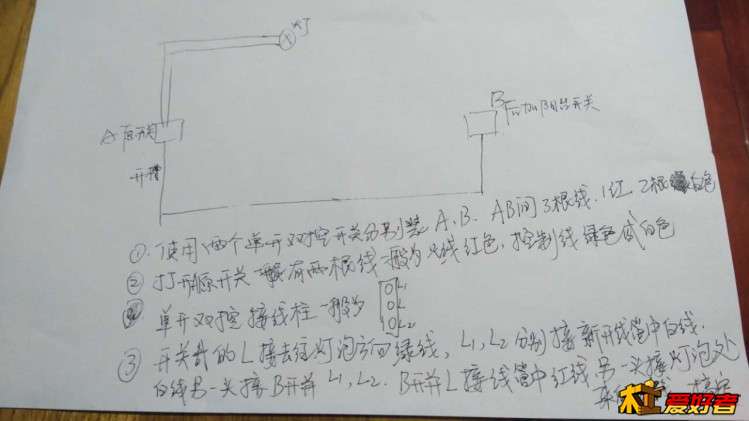 灯
A原开关
B后加的开关
开槽
① 使用两个单开双控开关分别装A、B. AB间3根线. 1红 2根白色
② 打开原开关 有两根线 一般为火线红色. 控制线绿色或白色
单开双控接线柱一般为 L1 L L2
③ 开关A的L接去往灯泡方向绿线, L1, L2 分别接新开线管中白线.
白线另一头接B开关L1, L2. B开关L接线管中红线 另一头接灯泡处
木工爱好者